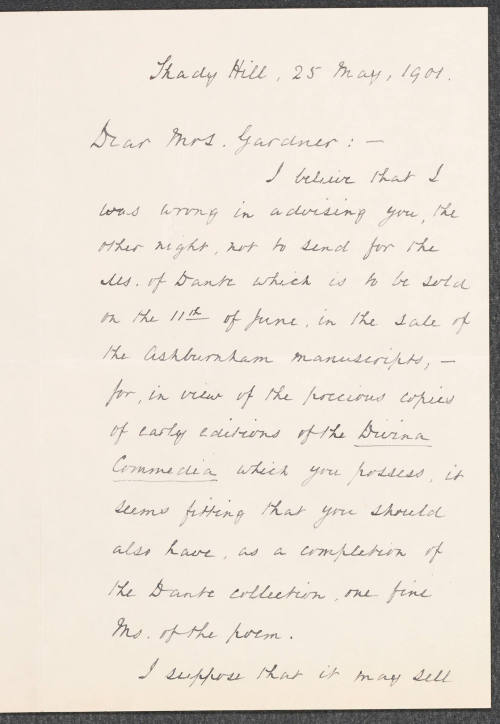 Shady Hill, 25 May, 1901.
Dear Mrs. Gardner: —
I believe that I
was wrong in advising you, the
other night, not to send for the
Ms. of Dante which is to be sold
on the 11th of June, in the sale of
the Ashburnham manuscripts, —
for, in view of the precious copies
of early editions of the Divina
Commedia which you possess, it
seems fitting that you should
also have, as a completion of
the Dante collection, one fine
Ms. of the poem.
I suppose that it may sell